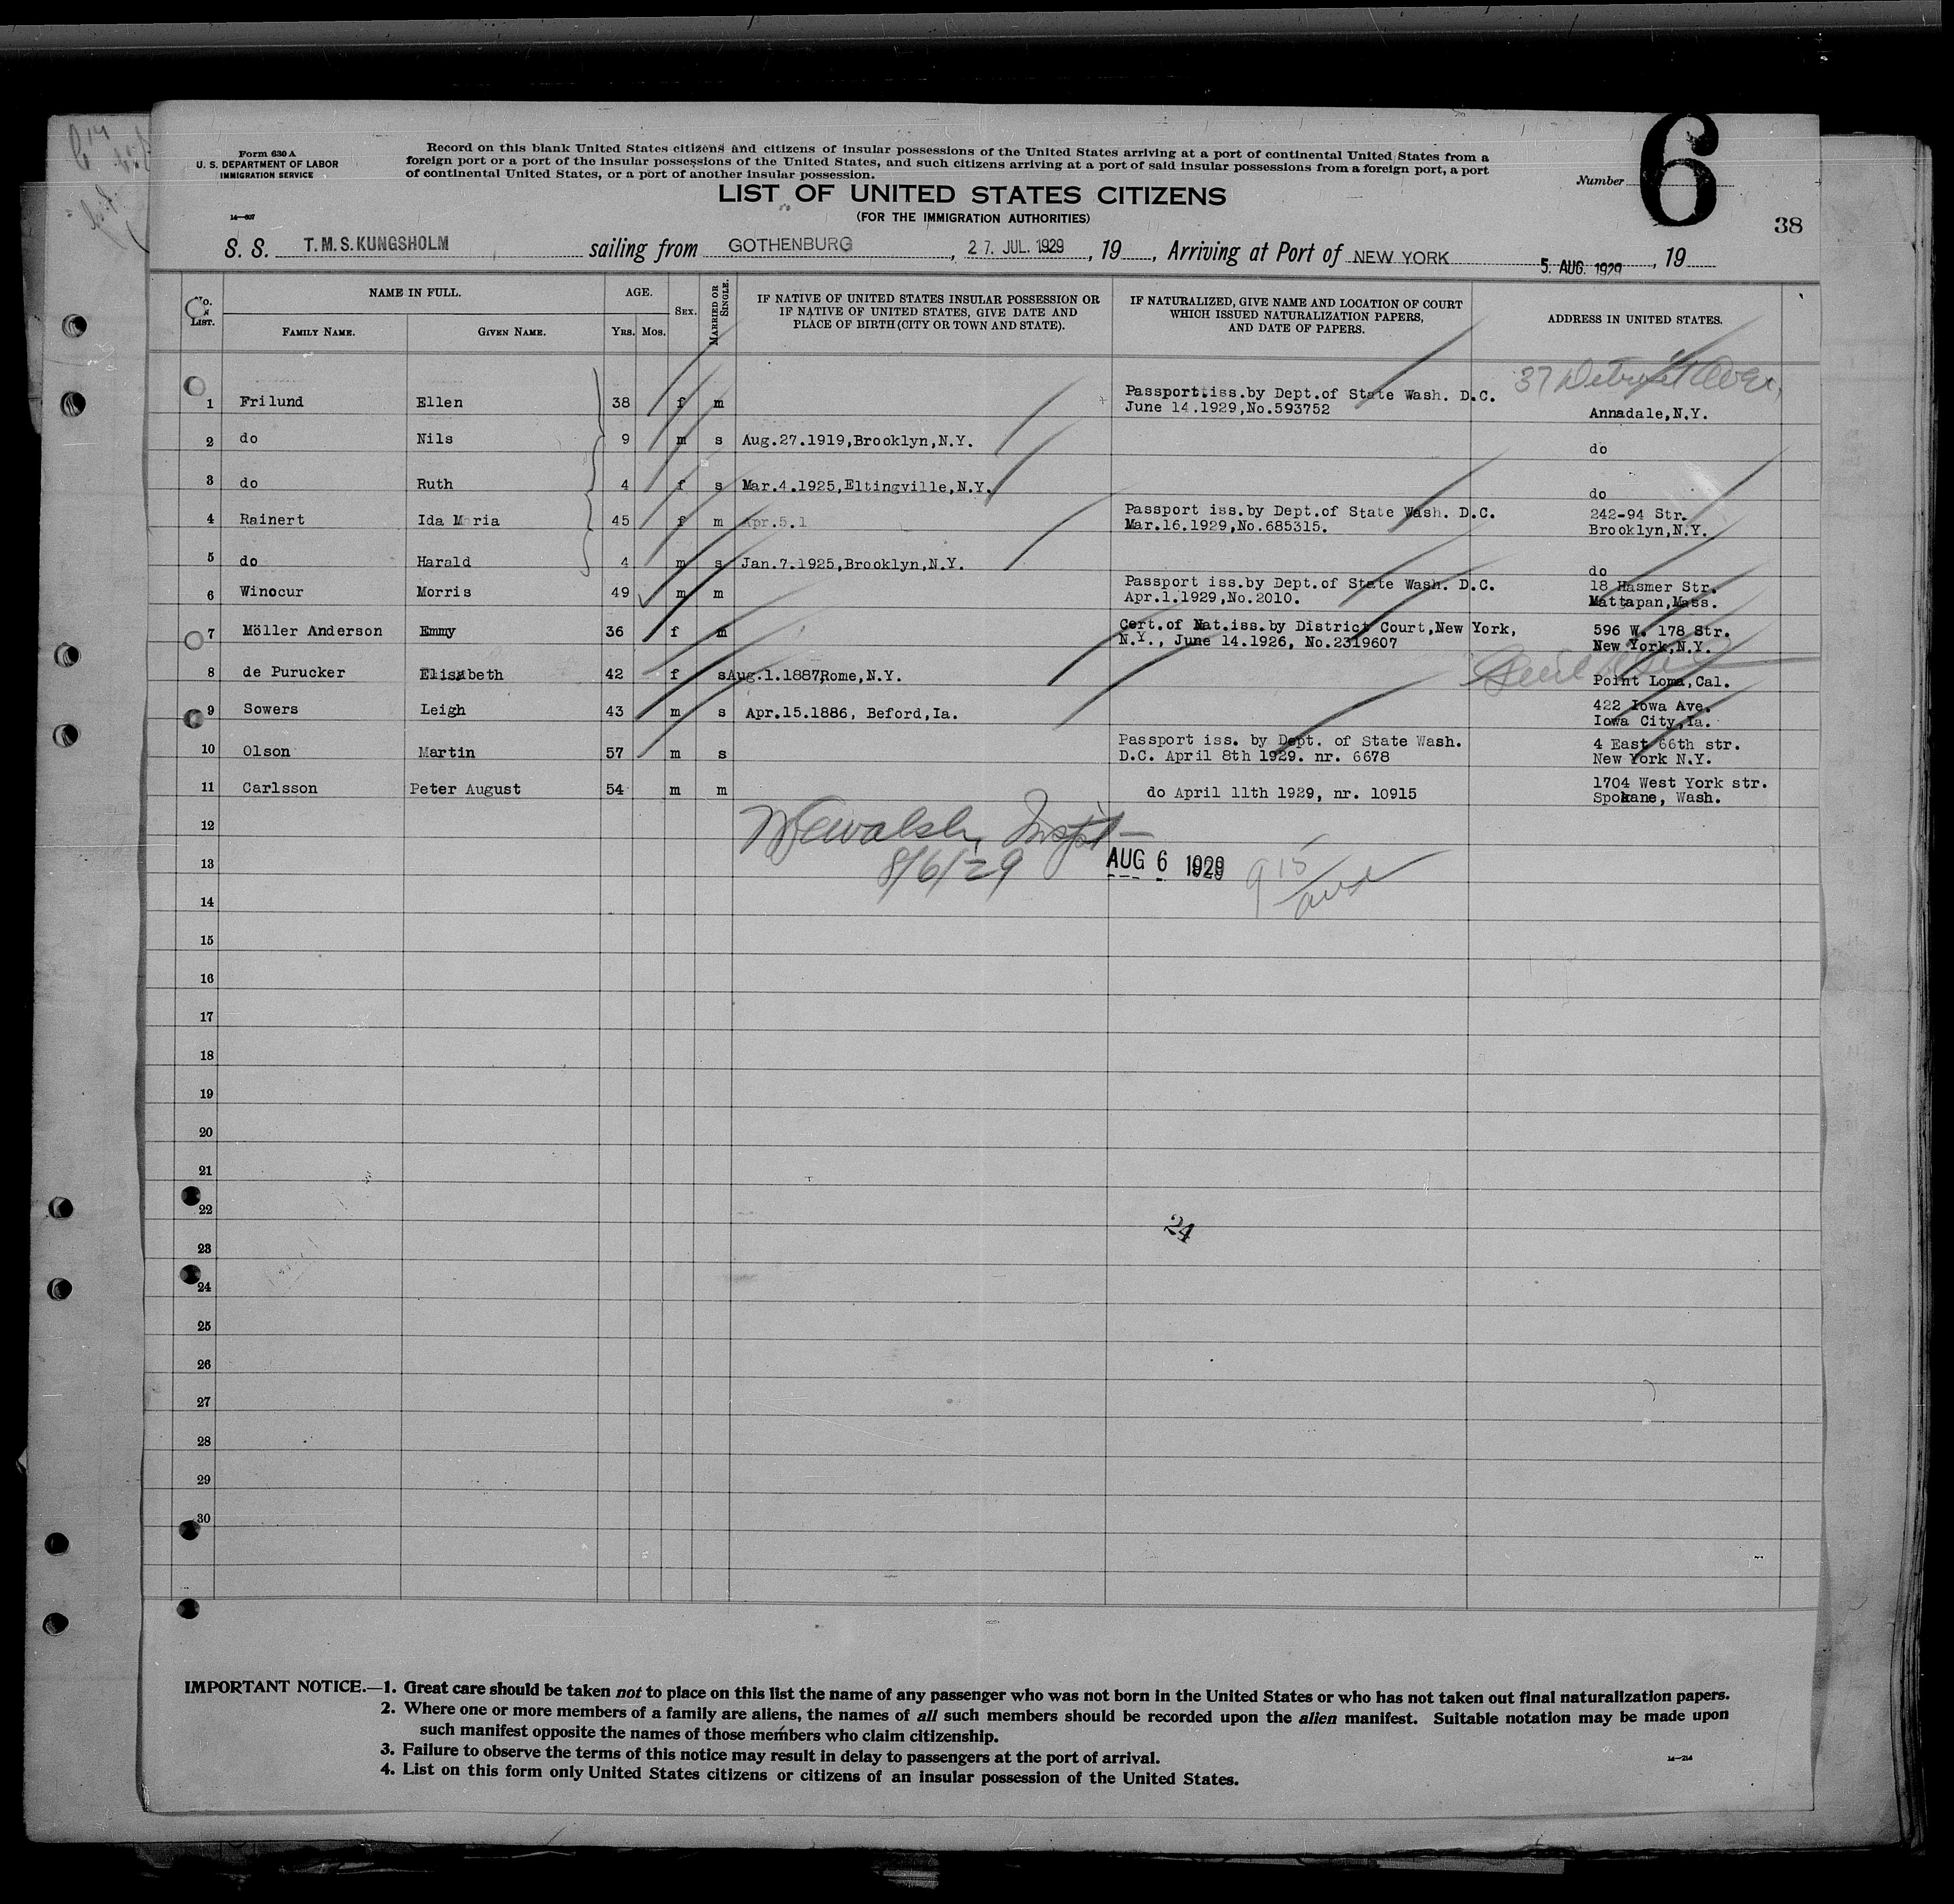 Form 630 A
U. S. DEPARTMENT OF LABOR
IMMIGRATION SERVICE
14—607
Record on this blank United States citizens and citizens of insular possessions of the United States arriving at a port of continental United States from a
foreign port or a port of the insular possessions of the United States, and such citizens arriving at a port of said insular possessions from a foreign port, a port
of continental United States, or a port of another insular possession.
LIST OF UNITED STATES CITIZENS
(FOR THE IMMIGRATION AUTHORITIES)
Number 6
38
S. S. T.M.S. KUNGSHOLM sailing from GOTHENBURG, 27. JUL. 1929, 19 , Arriving at Port of NEW YORK 5. AUG. 1929, 19
No. LIST. NAME IN FULL. AGE. SEX. MARRIED OR SINGLE. IF NATIVE OF UNITED STATES INSULAR POSSESSION OR IF NATIVE OF UNITED STATES, GIVE DATE AND PLACE OF BIRTH (CITY OR TOWN AND STATE). IF NATURALIZED, GIVE NAME AND LOCATION OF COURT WHICH ISSUED NATURALIZATION PAPERS, AND DATE OF PAPERS. ADDRESS IN UNITED STATES.
FAMILY NAME. GIVEN NAME. YRS. MOS.
37 Detroit Ave,
1 Frilund Ellen 38 f m Passport iss.by Dept.of State Wash. D.C. June 14.1929,No.593752 Annadale,N.Y.
2 do Nils 9 m s Aug.27.1919,Brooklyn,N.Y. do
3 do Ruth 4 f s Mar.4.1925,Eltingville,N.Y. do
4 Rainert Ida Maria 45 f m Apr.5.1 Passport iss.by Dept.of State Wash. D.C. Mar.16.1929,No.685315. 242-94 Str. Brooklyn,N.Y.
5 do Harald 4 m s Jan.7.1925,Brooklyn,N.Y. do
6 Winocur Morris 49 m m Passport iss.by Dept.of State Wash. D.C. Apr.1.1929,No.2010. 18 Hasmer Str. Mattapan,Mass.
7 Möller Anderson Emmy 36 f m Cert.of Nat.iss.by District Court,New York, N.Y., June 14.1926, No.2319607 596 W. 178 Str. New York,N.Y.
8 de Purucker Elisabeth 42 f s Aug.1.1887,Rome,N.Y. Point Loma,Cal.
9 Sowers Leigh 43 m s Apr.15.1886, Beford,Ia. 422 Iowa Ave. Iowa City,Ia.
10 Olson Martin 57 m s Passport iss. by Dept. of State Wash. D.C. April 8th 1929. nr. 6678 4 East 66th str. New York N.Y.
11 Carlsson Peter August 54 m m do April 11th 1929, nr. 10915 1704 West York str. Spokane, Wash.
12 Walsh, Inspt
13 8/6/29 AUG 6 1929 9 15
14
15
16
17
18
19
20
21
22
24
23
24
25
26
27
28
29
30
IMPORTANT NOTICE.—1. Great care should be taken not to place on this list the name of any passenger who was not born in the United States or who has not taken out final naturalization papers.
2. Where one or more members of a family are aliens, the names of all such members should be recorded upon the alien manifest. Suitable notation may be made upon
such manifest opposite the names of those members who claim citizenship.
3. Failure to observe the terms of this notice may result in delay to passengers at the port of arrival.
4. List on this form only United States citizens or citizens of an insular possession of the United States.
14—214